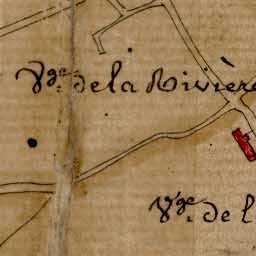 Vge. de la Rivière
Vge. de l